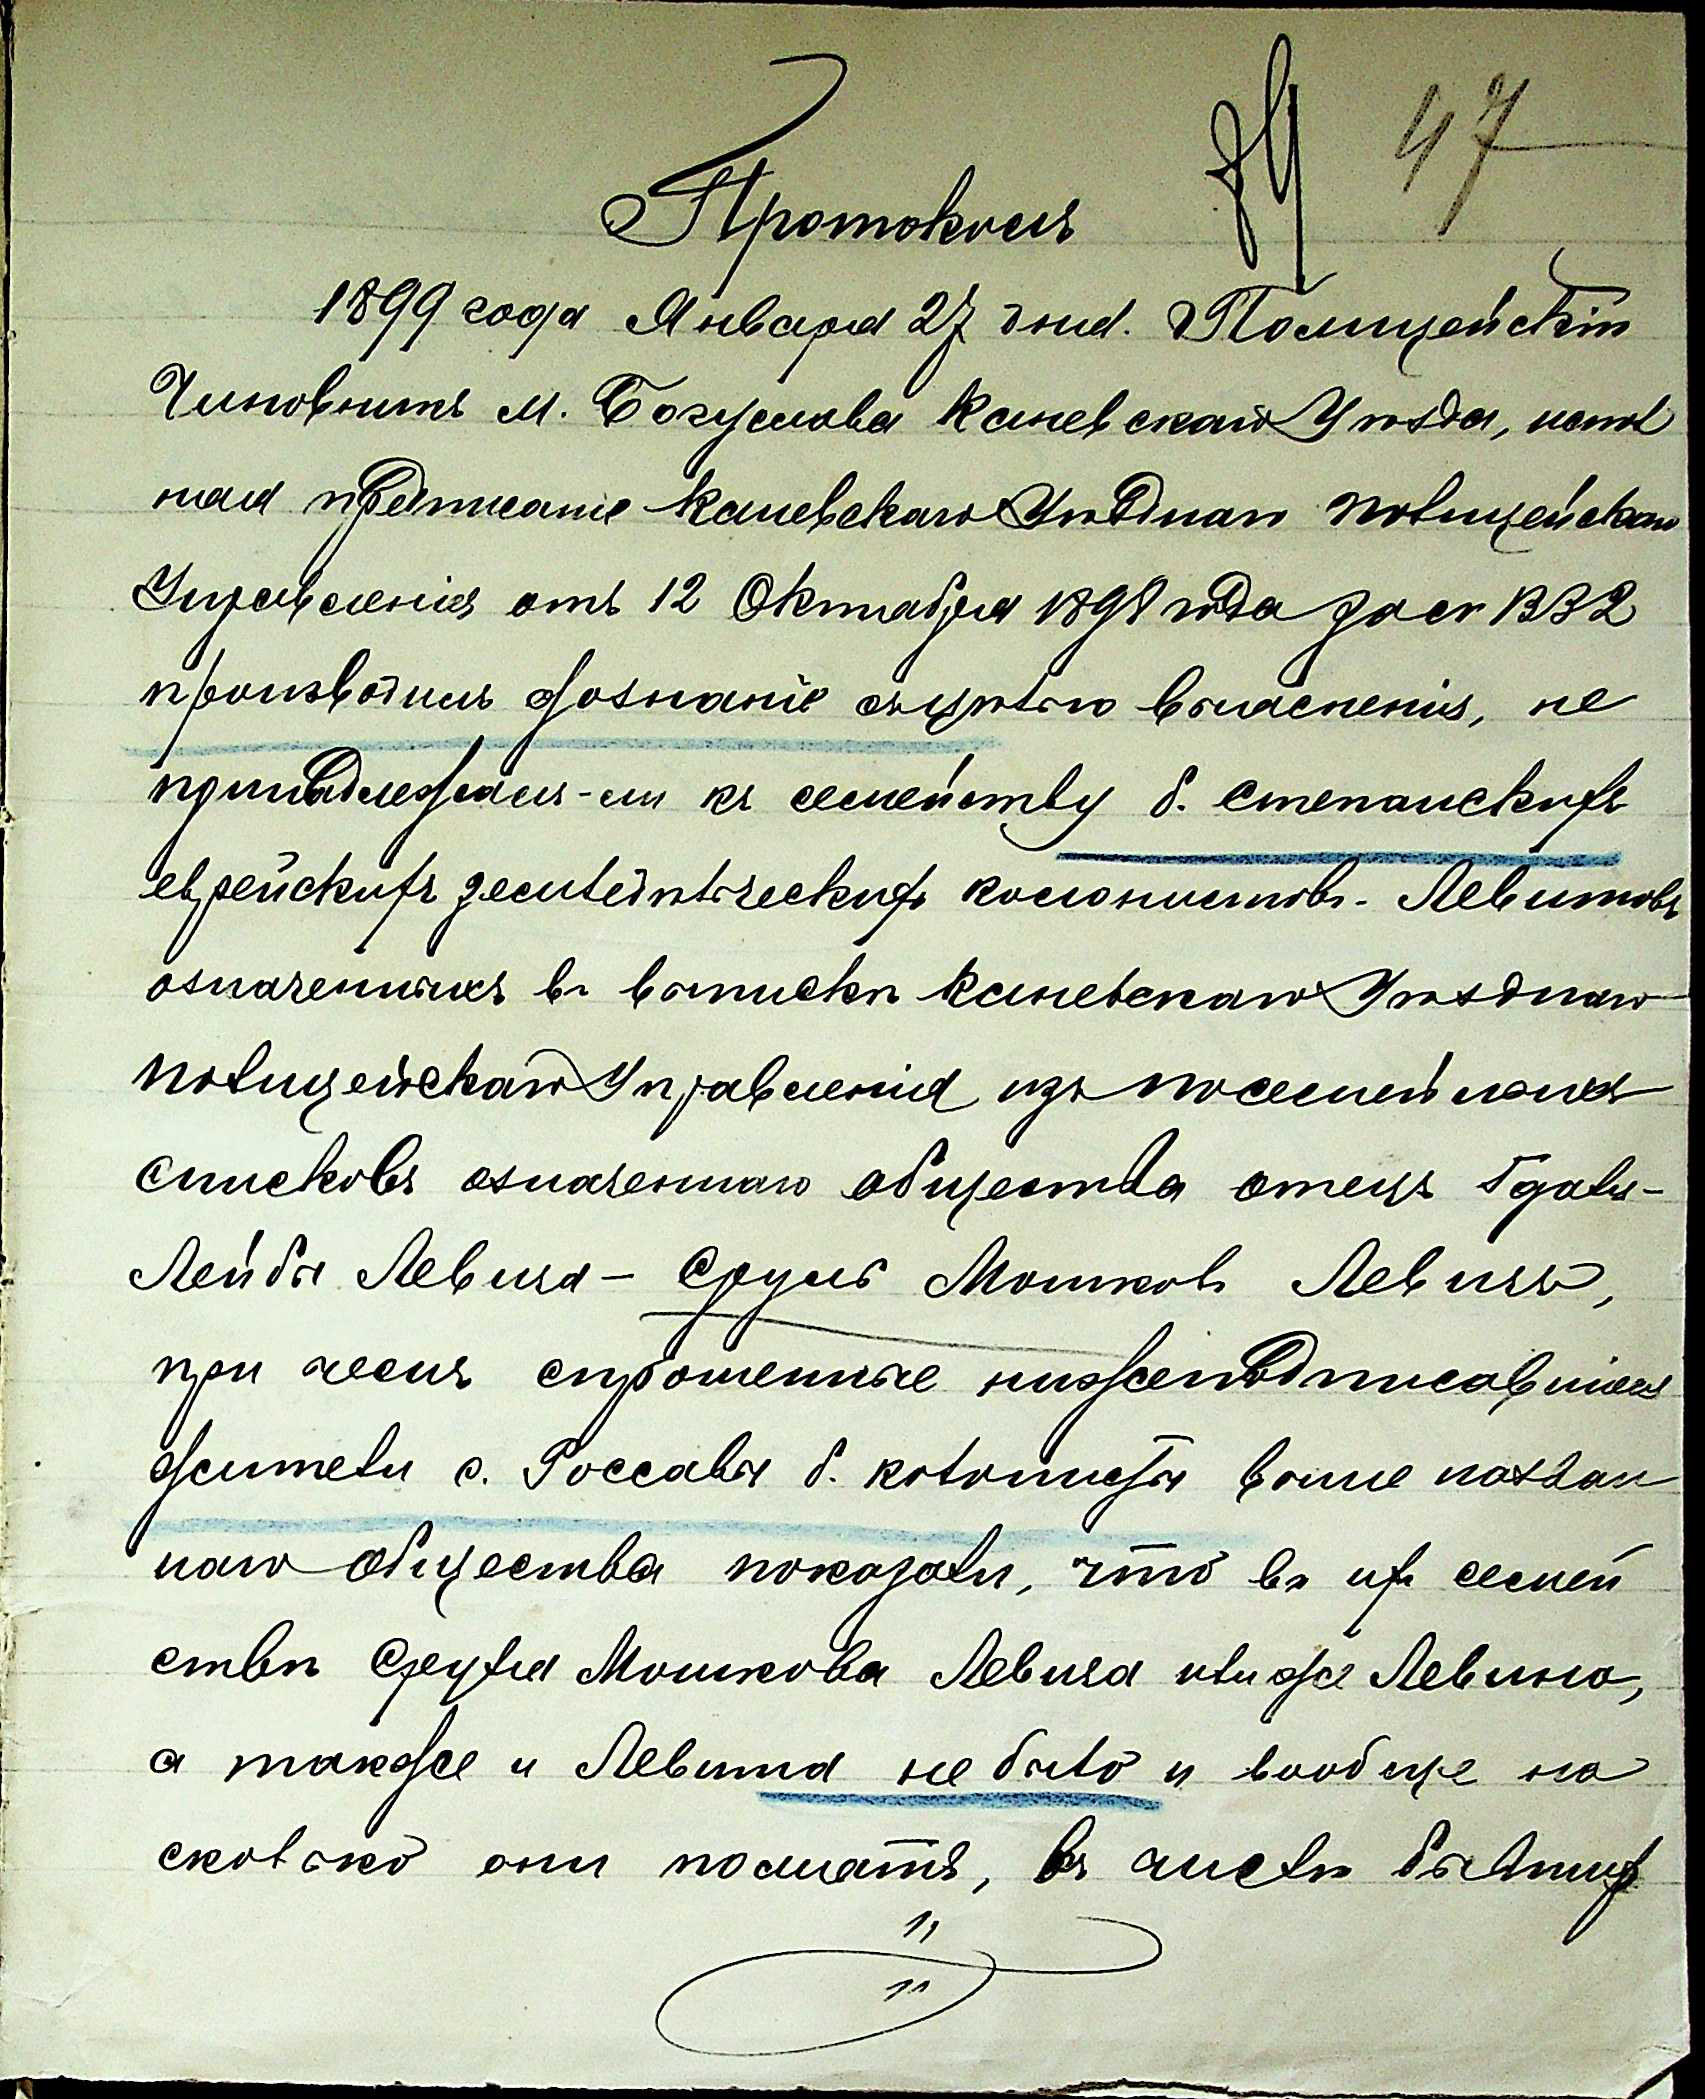 47
34
Протоколъ
1899 года Января 27 дня. Полицейскій
Чиновникъ м. Богуслава Каневскаго Уѣзда, испол
няя предписаніе Каневскаго Уѣзднаго Полицейскаго
Управленія отъ 12 Октября 1898 года за № 1332
производилъ дознаніе съ цѣлью выясненія, не
принадлежалъ-ли къ семейству б. Степанскихъ
еврейскихъ земледѣльческихъ колонистовъ - Левитовъ
означенныхъ въ выпискѣ Каневскаго Уѣзднаго
Полицейскаго Управленія изъ посемейныхъ
списковъ означеннаго общества отецъ Гдаля-
Лейбы Левича - Сруль Мошковъ Левичъ,
при чемъ спрошенные нижеподписавшіеся
жители с. Россавы б. колонисты выше назван
наго общества показали, что въ ихъ семей
ствѣ Сруля Мошкова Левича или же Левина,
а также и Левита не было и вообще на
сколько они помнятъ, въ числѣ бывшихъ